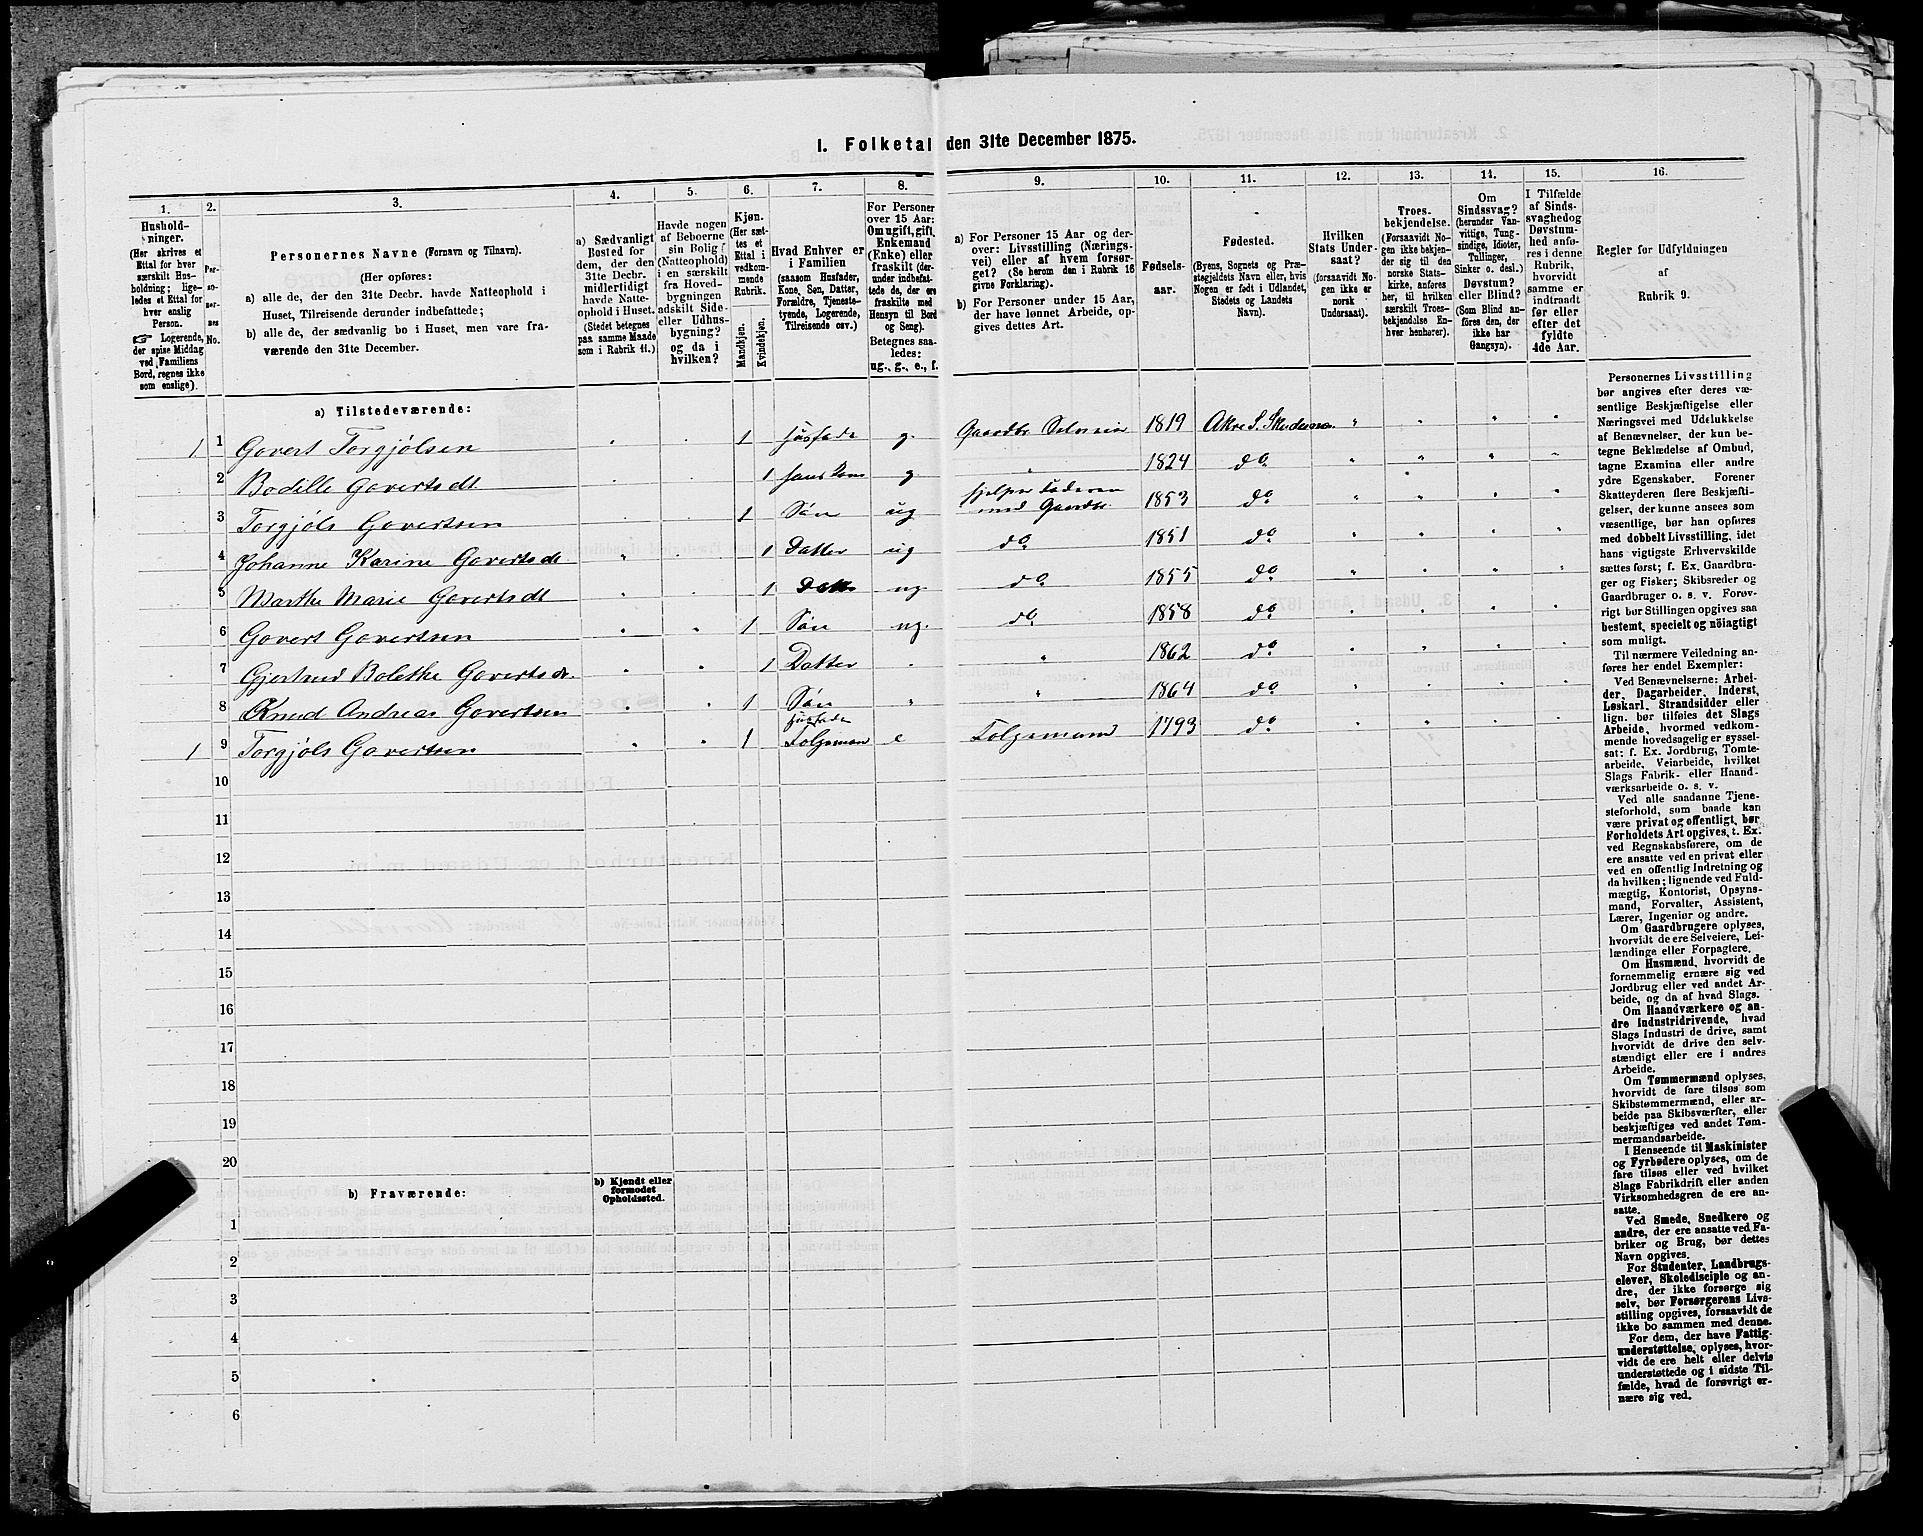 1. Folketal den 31te December 1875.
1.
Hushold-
ninger.
(Her skrives et
Ettal for hver
særskilt Hus-
holdning; lige-
ledes et Ettal for
hver enslig
Person.
☞ Logerende,
der spise Middag
ved Familiens
Bord, regnes ikke
som enslige).
2.
Per-
so-
ner-
nes
No.
3.
Personernes Navne (Fornavn og Tilnavn).
(Her opføres:
a) alle de, der den 31te Decbr. havde Natteophold i
Huset, Tilreisende derunder indbefattede;
b) alle de, der sædvanlig bo i Huset, men vare fra-
værende den 31te December.
4.
a) Sædvanligt
Bosted for
dem, der den
31te Decbr.
midlertidigt
havde Natte-
ophold i Huset.
(Stedet betegnes
paa samme Maade
som i Rubrik 11.)
5.
Havde nogen
af Beboerne
sin Bolig
(Natteophold)
i en særskilt
fra Hoved-
bygningen
adskilt Side-
eller Udhus-
bygning?
og da i
hvilken?
6.
Kjøn.
(Her sæt-
tes et
Ettal i
vedkom-
mende
Rubrik.
Mandkjøn.
Kvindekjøn.
7.
Hvad Enhver er
i Familien
(saasom Husfader,
Kone, Søn, Datter,
Forældre, Tjeneste-
tyende, Logerende,
Tilreisende osv.)
8.
For Personer
over 15 Aar:
Om ugift, gift,
Enkemand
(Enke) eller
fraskilt (der-
under indbefat-
tede de, der ere
fraskilte med
Hensyn til Bord
og Seng).
Betegnes saa-
ledes:
ug., g., e., f.
9.
a) For Personer 15 Aar og der-
over: Livsstilling (Nærings-
vei) eller af hvem forsør-
get? (Se herom den i Rubrik 16
givne Forklaring).
b) For Personer under 15 Aar,
der have lønnet Arbeide, op-
gives dettes Art.
10.
Fødsels-
aar.
11.
Fødested.
(Byens, Sognets og Præ-
stegjeldets Navn eller, hvis
Nogen er født i Udlandet,
Stedets og Landets
Navn).
12.
Hvilken
Stats Under-
saat?
(forsaavidt No-
gen ikke er
norsk
Undersaat).
13.
Troes-
bekjendelse.
(Forsaavidt No-
gen ikke bekjen-
der sig til den
norske Stats-
kirke, anføres
her, til hvilken
særskilt Troes-
bekjendelse En-
hver henhører).
14.
Om
Sindssvag?
(herunder Van-
vittige, Tung-
sindige, Idioter,
Tullinger,
Sinker o. desl.)
Døvstum?
eller Blind?
(Som Blind an-
føres den, der
ikke har
Gangsyn).
15.
I Tilfælde
af Sinds-
svaghed og
Døvstum-
hed anfø-
res i denne
Rubrik,
hvorvidt
samme er
indtraadt
før eller
efter det
fyldte
4de Aar.
16.
Regler for Udfyldningen
af
Rubrik 9.
a) Tilstedeværende:
1 1 Govert Torgjølsen 1 Husfade g. Gaardbr Selveier 1819 Akre S. Skudenes
2 Bodille Govertsdt 1 g 1824 do
3 Torgjøls Govertsen 1 Søn ug hjelper Faderen med Gaardbr. 1853 do
4 Johanne Karine Govertsdt 1 Datter ug do 1851 do
5 Marthe Marie Govertsdt 1 Datt ug. do 1855 do
6 Govert Govertsen 1 Søn ug. do 1858 do
7 Gjertrud Bolethe Govertsdt. 1 Datter 1862 do
8 Knud Andreas Govertsen 1 Søn 1864 do
1 9 Torgjøls Govertsen 1 husfade Folgeman e Folgemand 1793 do
10
11
12
13
14
15
16
17
18
19
20
b) Fraværende:
b) Kjendt eller
formodet
Opholdssted.
1
2
3
4
5
6
Personernes Livsstilling
bør angives efter deres væ-
sentlige Beskjæftigelse eller
Næringsvei med Udelukkelse
af Benævnelser, der kun be-
tegne Beklædelse af Ombud,
tagne Examina eller andre
ydre Egenskaber. Forener
Skatteyderen flere Beskjæfti-
gelser, der kunne ansees som
væsentlige, bør han opføres
med dobbelt Livsstilling, idet
hans vigtigste Erhvervskilde
sættes først; f. Ex. Gaardbru-
ger og Fisker; Skibsreder og
Gaardbruger o. s. v. Forøv-
rigt bør Stillingen opgives saa
bestemt, specielt og nöiagtigt
som muligt.
Til nærmere Veiledning an-
føres her endel Exempler:
Ved Benævnelserne: Arbei-
der, Dagarbeider, Inderst,
Løskarl, Strandsidder eller
lign. bør tilføies det Slags
Arbeide, hvormed vedkom-
mende hovedsagelig er syssel-
sat: f. Ex. Jordbrug, Tomte-
arbeide, Veiarbeide, hvilket
Slags Fabrik- eller Haand-
værksarbeide o. s. v.
Ved alle saadanne Tjene-
steforhold, som baade kan
være privat og offentligt, bør
Forholdets Art opgives, t. Ex.
ved Regnskabsførere, om de
ere ansatte ved en privat eller
ved en offentlig Indretning og
da hvilken; lignende ved Fuld-
mægtig, Kontorist, Opsyns-
mand, Forvalter, Assistent,
Lærer, Ingeniør og andre.
Om Gaardbrugere oplyses,
hvorvidt de ere Selveiere, Lei-
lændinge eller Forpagtere.
Om Husmænd, hvorvidt de
fornemmelig ernære sig ved
Jordbrug eller ved andet Ar-
beide, og da af hvad Slags.
Om Haandværkere og an-
dre Industridrivende, hvad
Slags Industri de drive, samt
hvorvidt de drive den selv-
stændigt eller ere i andres
Arbeide.
Om Tømmermænd oplyses,
hvorvidt de fare tilsøs som
Skibstømmermænd, eller ar-
beide paa Skibsværfter, eller
beskjæftiges ved andet Tøm-
mermandsarbeide.
I Henseende til Maskinister
og Fyrbødere oplyses, om de
fare tilsøs eller ved hvilket
Slags Fabrikdrift eller anden
Virksomhedsgren de ere an-
satte.
Ved Smede, Snedkere og
andre, der ere ansatte ved Fa-
briker og Brug, bør dettes
Navn opgives.
For Studenter, Landbrugs-
elever, Skoledisciple og an-
dre, der ikke forsørge sig
selv, bør Forsørgerens Livs-
stilling opgives, forsaavidt de
ikke bo sammen med denne.
For dem, der have Fattig-
understøttelse, oplyses, hvor-
vidt de ere helt eller delvis
understøttede og i sidste Til-
fælde, hvad de forøvrigt er-
nære sig ved.